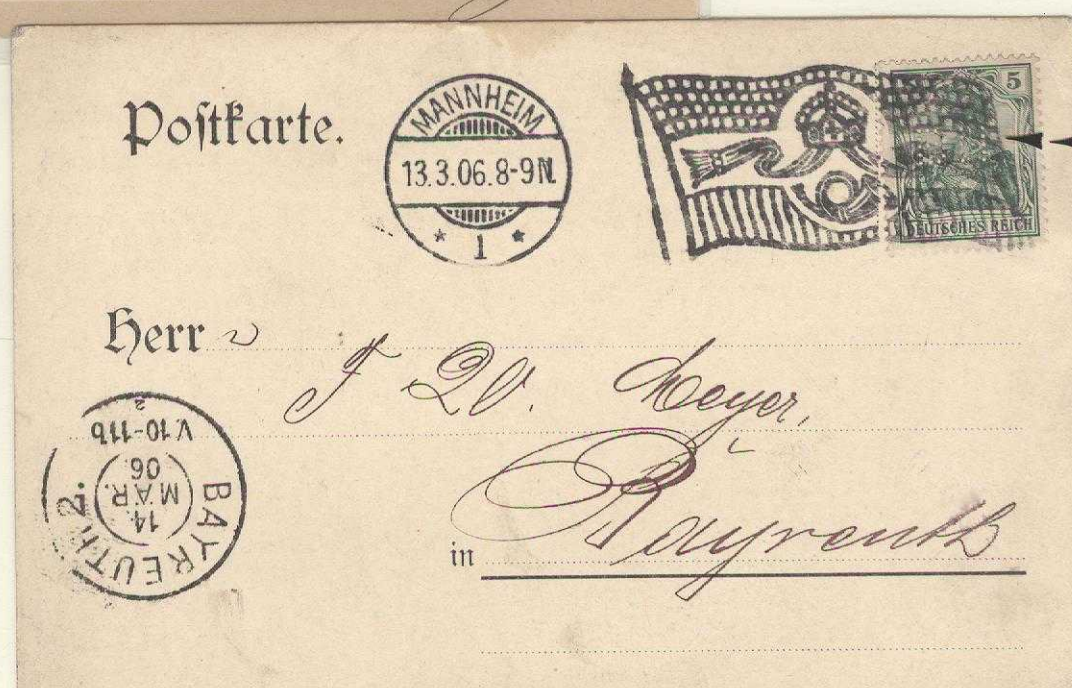 Poſtkarte.
MANNHEIM
13.3.06.8-9N.
* 1 *
5
DEUTSCHES REICH
Herr
J W. Meyer,
in Bayreuth
BAYREUTH 2.
14. MÄR. 06.
V.10-11b